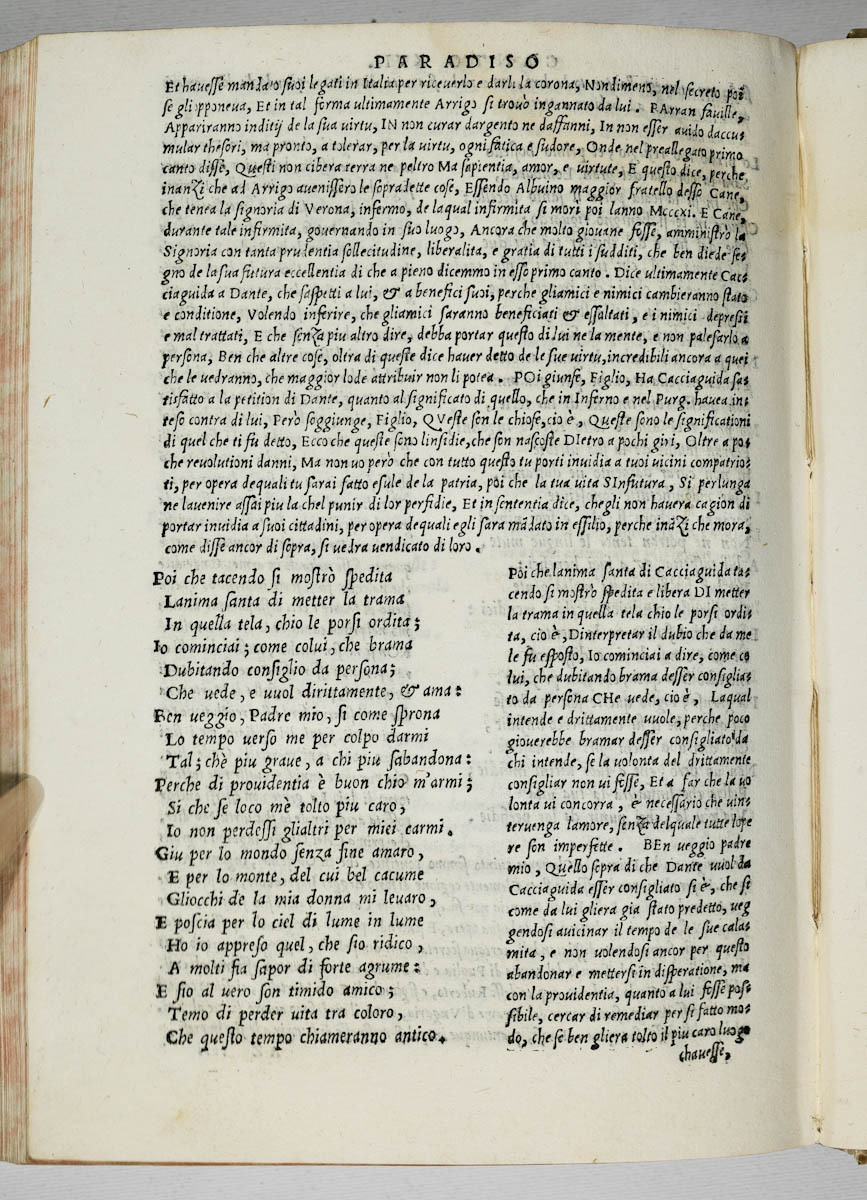 PARADISO
Et havesse mandato suoi legati in Italia per riceverlo e darli la corona, Nondimeno, nel secreto poi
se gli opponeva, Et in tal forma ultimamente Arrigo si trovò ingannato da lui. PArran faville,
Appariranno inditij de la sua virtu, IN non curar dargento ne daffanni, In non esser avido daccu-
mular thesori, ma pronto, a tolerar, per la virtu, ogni fatica e sudore, Onde nel preallegato primo
canto disse, Questi non cibera terra ne peltro Ma sapientia, amor, e virtute, E questo dice, perche
inanzi che ad Arrigo avenissero le sopradette cose, Essendo Albuino maggior fratello desso Cane,
che tenea la signoria di Verona, infermo, de laqual infirmita si morì poi lanno Mcccxi. E Cane,
durante tale infirmita, governando in suo luogo, Ancora che molto giovane fosse, amministrò la
Signoria con tanta prudentia sollecitudine, liberalita, e gratia di tutti i sudditi, che ben diede se-
gno de la sua futura eccellentia di che a pieno dicemmo in esso primo canto. Dice ultimamente Cac-
ciaguida a Dante, che saspetti a lui, & a benefici suoi, perche gliamici e nimici cambieranno stato
e conditione, Volendo inferire, che gliamici saranno beneficiati & essaltati, e i nimici depressi
e mal trattati, E che senza piu altro dire, debba portar questo di lui ne la mente, e non palesarlo a
persona, Ben che altre cose, oltra di queste dice haver detto de le sue virtu, incredibili ancora a quei
che le vedranno, che maggior lode attribuir non li potea. POi giunse, Figlio, Ha Cacciaguida sa-
tisfatto a la petition di Dante, quanto al significato di quello, che in Inferno e nel Purg. havea in-
teso contra di lui, Però soggiunge, Figlio, QVeste son le chiose, cio è, Queste sono le significationi
di quel che ti fu detto, Ecco che queste sono linsidie, che son nascoste DIetro a pochi giri, Oltre a po-
che revolutioni danni, Ma non vo però che con tutto questo tu porti invidia a tuoi vicini compatrio-
ti, per opera dequali tu sarai fatto esule de la patria, poi che la tua vita SInfutura, Si perlunga
ne lavenire assai piu la chel punir di lor perfidie, Et in sententia dice, chegli non havera cagion di
portar invidia a suoi cittadini, per opera dequali egli sara mādato in essilio, percheināzi che mora,
come disse ancor di sopra, si vedra vendicato di loro.
Poi che tacendo si mostrò spedita
Lanima santa di metter la trama
In quella tela, chio le porsi ordita;
Io cominciai; come colui, che brama
Dubitando consiglio da persona;
Che vede, e vuol dirittamente, & ama:
Ben veggio, Padre mio, si come sprona
Lo tempo verso me per colpo darmi
Tal; chè piu grave, a chi piu sabandona:
Perche di providentia è buon chio m'armi;
Si che se loco mè tolto piu caro,
Io non perdessi glialtri per miei carmi.
Giu per lo mondo senza fine amaro,
E per lo monte, del cui bel cacume
Gliocchi de la mia donna mi levaro,
E poscia per lo ciel di lume in lume
Ho io appreso quel, che sio ridico,
A molti fia sapor di forte agrume:
E sio al vero son timido amico;
Temo di perder vita tra coloro,
Che questo tempo chiameranno antico.
Poi che lanima santa di Cacciaguida ta-
cendo si mostrò spedita e libera DI metter
la trama in quella tela chio le porsi ordi-
ta, cio è, Dinterpretar il dubio che da me
le fu esposto, Io cominciai a dire, come co
lui, che dubitando brama desser consiglia-
to da persona CHe vede, cio è, Laqual
intende e drittamente vuole, perche poco
gioverebbe bramar desser consigliato da
chi intende, se la volonta del drittamente
consigliar non vi fosse, Et a far che la vo
lonta vi concorra, è necessario che vin-
tervenga lamore, senza delquale tutte lope
re son imperfette. BEn veggio padre
mio, Quello sopra di che Dante vuol da
Cacciaguida esser consigliato si è, che si
come da lui gliera gia stato predetto, veg
gendosi avicinar il tempo de le sue cala-
mita, e non volendosi ancor per questo
abandonar e mettersi in disperatione, ma
con la providentia, quanto a lui fosse pos-
sibile, cercar di remediar per si fatto mo-
do, che se ben gliera tolto il piu caro luogo
chavesse,